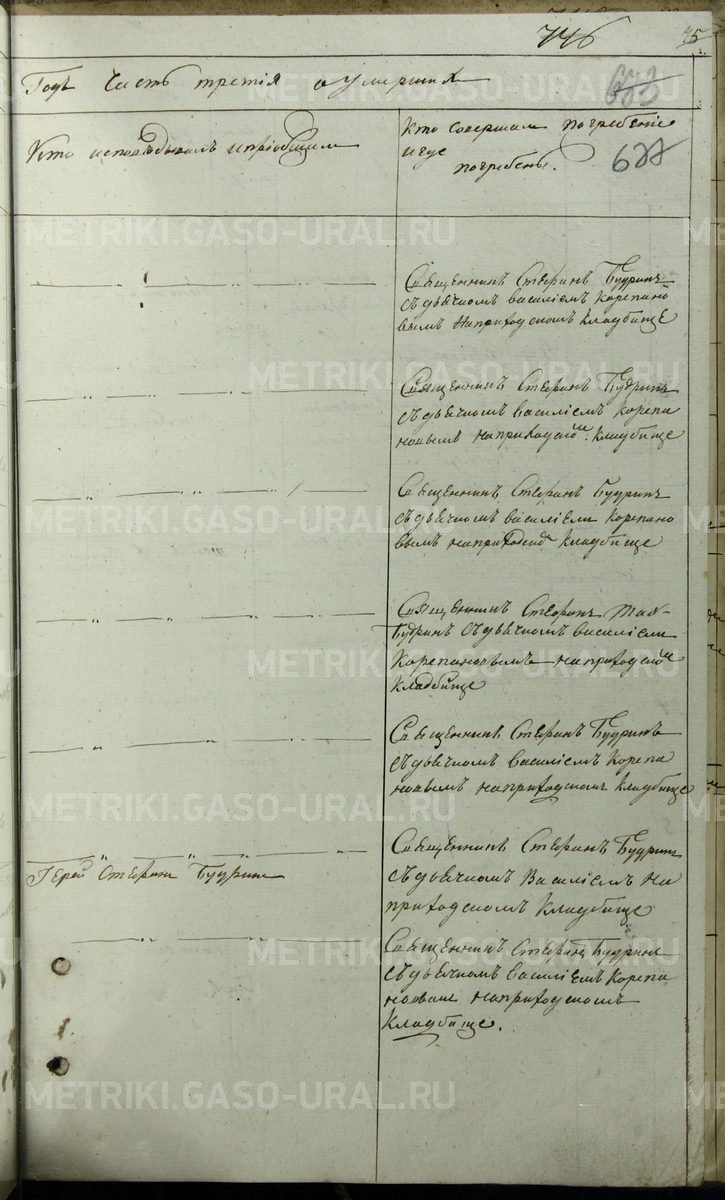 746
75
Годъ часть третія о умершихъ
633
Кто исповѣдывалъ и пріобщалъ
Кто совершалъ погребеніе
и где
погребены.
677
Священникъ Стефанъ Будринъ
съ дьячкомъ василіемъ Корепано
вымъ на приходскомъ кладбище
Священникъ Стефанъ Будринъ
съ дьячкомъ василіемъ Корепа
новымъ на приходском: кладбище
Священникъ Стефанъ Будринъ
съ дьячкомъ василіемъ Корепано
вымъ на приходском кладбище
Священникъ Стефанъ
Будринъ съ дьячкомъ василіемъ
Корепановымъ на приходском
кладбище
Священникъ Стефанъ Будринъ
съ дьячкомъ василіемъ Корепа
новымъ на приходском кладбище
Іерей Стефанъ Будринъ
Священникъ Стефанъ Будрин
съ дьячкомъ Василіемъ На
приходскомъ кладбище
Священникъ Стефанъ Будрин
съ дьячкомъ василіемъ Корепа
новым на приходскомъ
кладбище.
METRIKI.GASO-URAL.RU